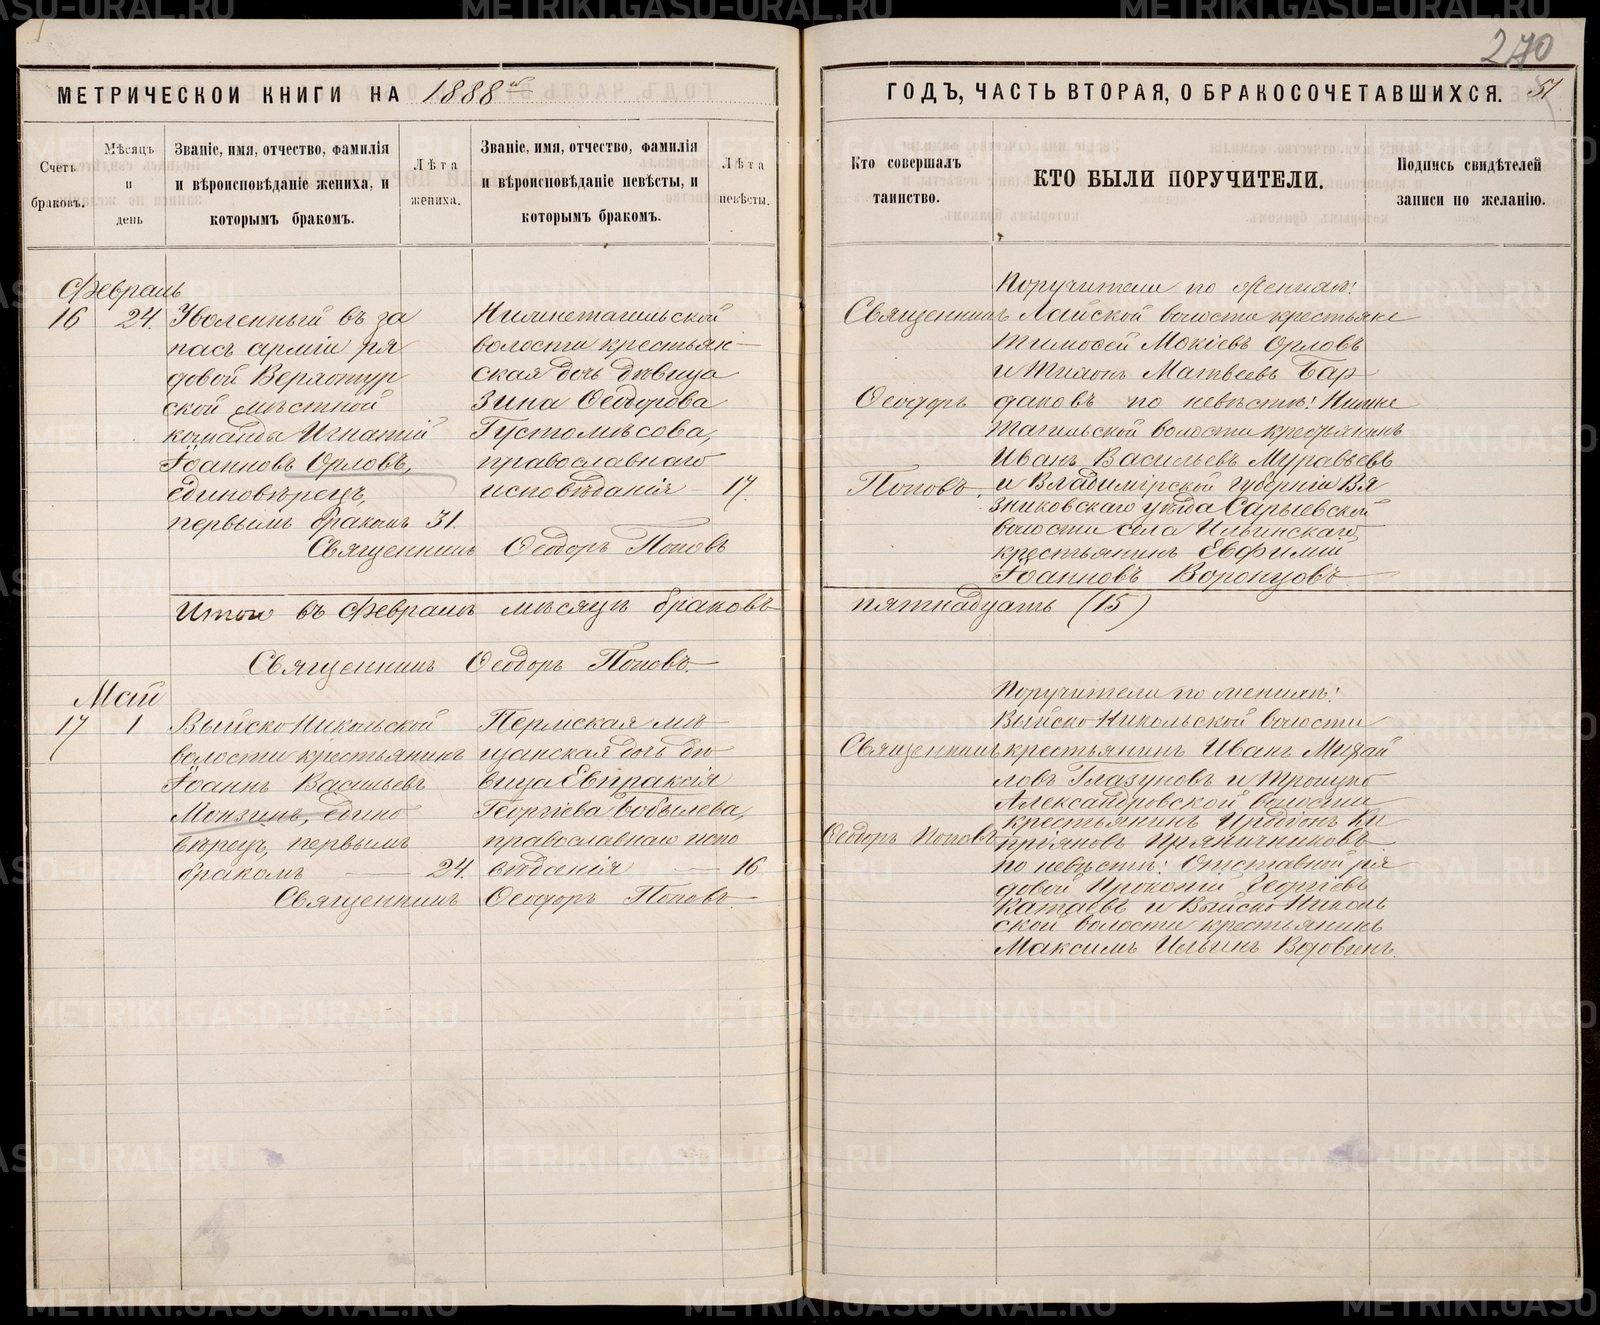 270
МЕТРИЧЕСКОЙ КНИГИ НА 1888 й
ГОДЪ, ЧАСТЬ ВТОРАЯ, О БРАКОСОЧЕТАВШИХСЯ. 51
Счетъ браковъ.
Мѣсяцъ и день
Званіе, имя, отчество, фамилія
и вѣроисповѣданіе жениха, и
которымъ бракомъ.
Лѣта жениха.
Званіе, имя, отчество, фамилія
и вѣроисповѣданіе невѣсты, и
которымъ бракомъ.
Лѣта невѣсты.
Кто совершалъ
таинство.
КТО БЫЛИ ПОРУЧИТЕЛИ.
Подпись свидѣтелей
записи по желанію.
Февраль
16 24.
Уволенный въ за
пасъ арміи ря
довой Верхотур
ской мѣстной
команды Игнатій
Іоанновъ Орловъ,
единовѣрецъ,
первымъ бракомъ 31.
Нижнетагильской
волости крестьян-
ская дочь дѣвица
Зина Ѳеодорова
Густомѣсова,
православнаго
исповѣданія - 17.
Священникъ Ѳеодоръ Поповъ
Священникъ
Ѳеодоръ
Поповъ
Поручители по женихѣ:
Лайской волости крестьяне
Тимоѳей Мокіевъ Орловъ
и Тихонъ Матвеевъ Бар
даковъ по невѣстѣ: Нижне
тагильской волости крестьянинъ
Иванъ Васильевъ Муравьевъ
и Владимірской губерніи Вя
зниковскаго уѣзда Сарыевской
волости села Ильинскаго,
крестьянинъ Евфимій
Іоанновъ Воронцовъ
Итого въ Февралѣ мѣсяцѣ браковъ
пятнадцать (15)
Священникъ Ѳеодоръ Поповъ.
Май
17 1
Выйско Никольской
волости крестьянинъ
Іоаннъ Васильевъ
Монзинъ, едино
вѣрецъ, первымъ
бракомъ 24.
Пермская мѣ
щанская дочь дѣ
вица Евпраксія
Георгіева Бобылева,
православнаго испо
вѣданія 16
Священникъ Ѳеодоръ Поповъ
Священникъ
Ѳеодоръ Поповъ
Поручители по женихѣ:
Выйско Никольской волости
крестьянинъ Иванъ Михай
ловъ Глазуновъ и Троицко
Александровской волости
крестьянинъ Иродіонъ Ки
пріяновъ Пряничниковъ
по невѣстѣ: Отставной ря
довой Прокопій Георгіевъ
Катаевъ и Выйско Николь
ской волости крестьянинъ
Максимъ Ильинъ Вдовинъ.
METRIKI.GASO-URAL.RU